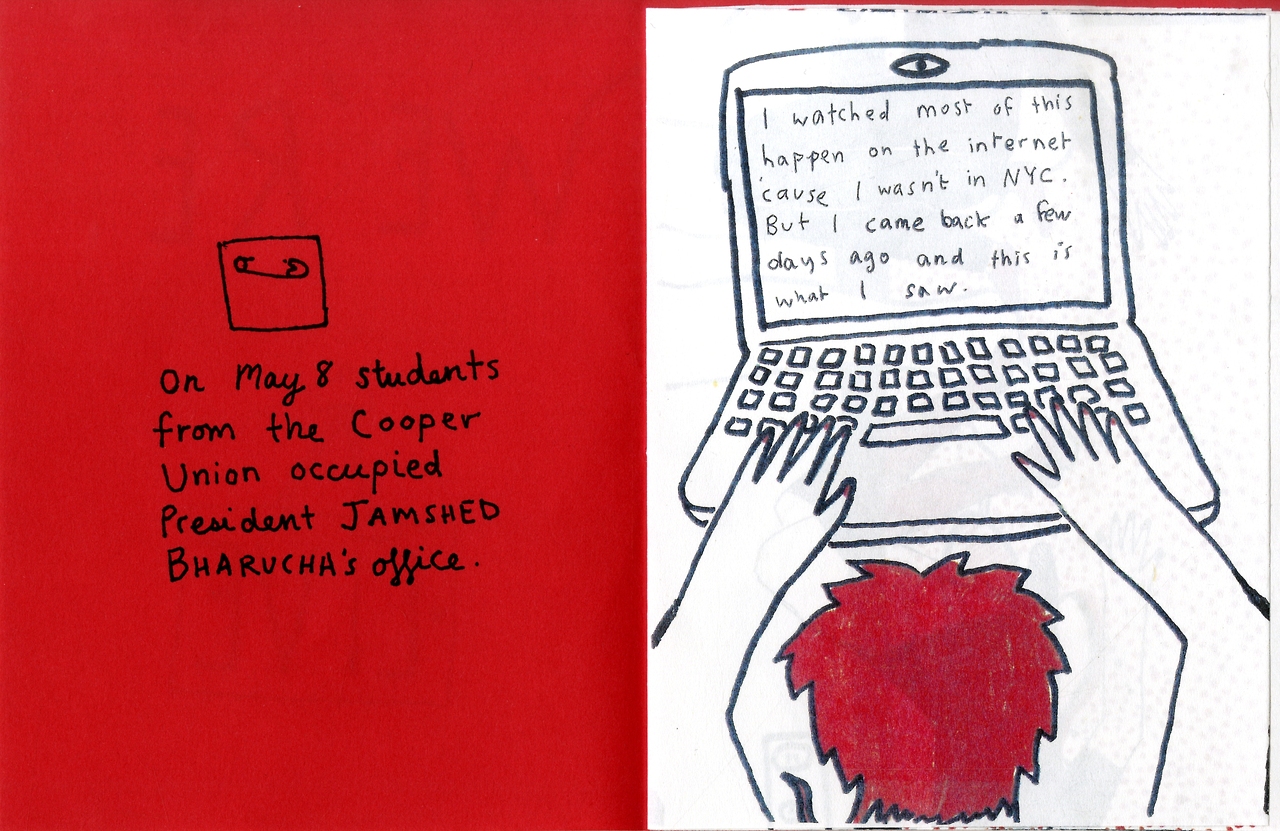 On May 8 students
from the Cooper
Union occupied
President JAMSHED
BHARUCHA's office.
I watched most of this
happen on the internet
'cause I wasn't in NYC.
But I came back a few
days ago and this is
what I saw.